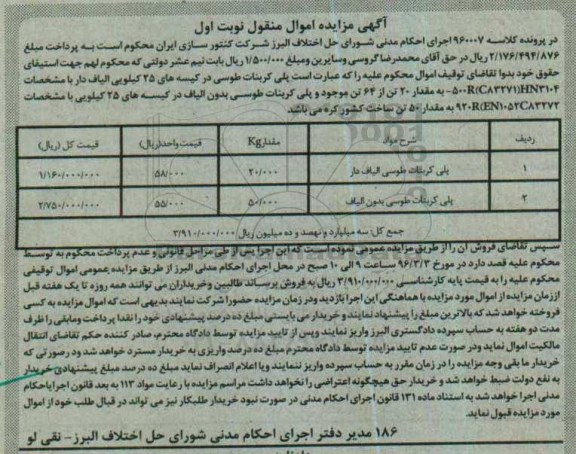 آگهی مزایده اموال منقول نوبت اول
در پرونده کلاسه ۹۶۰۰۰۷ اجرای احکام مدنی شورای حل اختلاف البرز شرکت کنتور سازی ایران محکوم است به پرداخت مبلغ
۲/۱۷۶/۴۹۴/۸۷۶ ریال در حق آقای محمدرضا گروسی وسایرین ومبلغ ۱/۵۰۰/۰۰۰ ریال بابت نیم عشر دولتی که محکوم لهم جهت استیفای
حقوق خود بدوا تقاضای توقیف اموال محکوم علیه را که عبارت است پلی کربنات طوسی در کیسه های ۲۵ کیلویی الیاف دار با مشخصات
۵۰۰R(CA۸۳۲۷۱)HN۳۱۰۴- به مقدار ۲۰ تن از ۶۴ تن موجود و پلی کربنات طوسی بدون الیاف در کیسه های ۲۵ کیلویی با مشخصات
۹۲۰R(EN۱۰۵۲CA۸۳۲۷۲ به مقدار ۵۰ تن ساخت کشور کره می باشد
ردیف شرح مواد مقدارKg قیمت واحد(ریال) قیمت کل (ریال)
۱ پلی کربنات طوسی الیاف دار ۲۰/۰۰۰ ۵۸/۰۰۰ ۱/۱۶۰/۰۰۰/۰۰۰
۲ پلی کربنات طوسی بدون الیاف ۵۰/۰۰۰ ۵۵/۰۰۰ ۲/۷۵۰/۰۰۰/۰۰۰
جمع کل: سه میلیارد و نهصد و ده میلیون ریال ۳/۹۱۰/۰۰۰/۰۰۰
سپس تقاضای فروش آن را از طریق مزایده عمومی نموده است که این اجرا پس از طی مراحل قانونی و عدم پرداخت محکوم به توسط
محکوم علیه قصد دارد در مورخ ۹۶/۳/۳ ساعت ۹ الی ۱۰ صبح در محل اجرای احکام مدنی البرز از طریق مزایده عمومی اموال توقیفی
محکوم علیه را به قیمت پایه کارشناسی ۳/۹۱۰/۰۰۰/۰۰۰ ریال به فروش برساند طالبین وخریداران می توانند همه روزه تا یک هفته قبل
اززمان مزایده از اموال مورد مزایده با هماهنگی این اجرا بازدید ودر زمان مزایده حضورا شرکت نمایند بدیهی است که اموال مزایده به کسی
فروخته خواهد شد که بالاترین مبلغ را پیشنهاد نمایند و خریدار می بایستی مبلغ ده درصد پیشنهادی خود را نقدا پرداخت ومابقی را ظرف
مدت دو هفته به حساب سپرده دادگستری البرز واریز نمایند وپس از تایید مزایده توسط دادگاه محترم، صادر کننده حکم تقاضای انتقال
مالکیت اموال نماید ودر صورت عدم تایید مزایده توسط دادگاه محترم مبلغ ده درصد واریزی به خریدار مسترد خواهد شد ود رصورتی که
خریدار ما بقی وجه مزایده را در زمان مقرر به حساب سپرده واریز ننمایند ویا اعلام انصراف نماید مبلغ ده درصد مبلغ پیشنهادی خریدار
به نفع دولت ضبط خواهد شد و خریدار حق هیچگونه اعتراضی را نخواهد داشت مراسم مزایده با رعایت مواد ۱۱۳ به بعد قانون اجرای احکام
مدنی اجرا خواهد شد به استناد ماده ۱۳۱ قانون اجرای احکام مدنی در صورت نبود خریدار طلبکار نیز می تواند در قبال طلب خود از اموال
مورد مزایده قبول نماید.
۱۸۶ مدیر دفتر اجرای احکام مدنی شورای حل اختلاف البرز - نقی لو